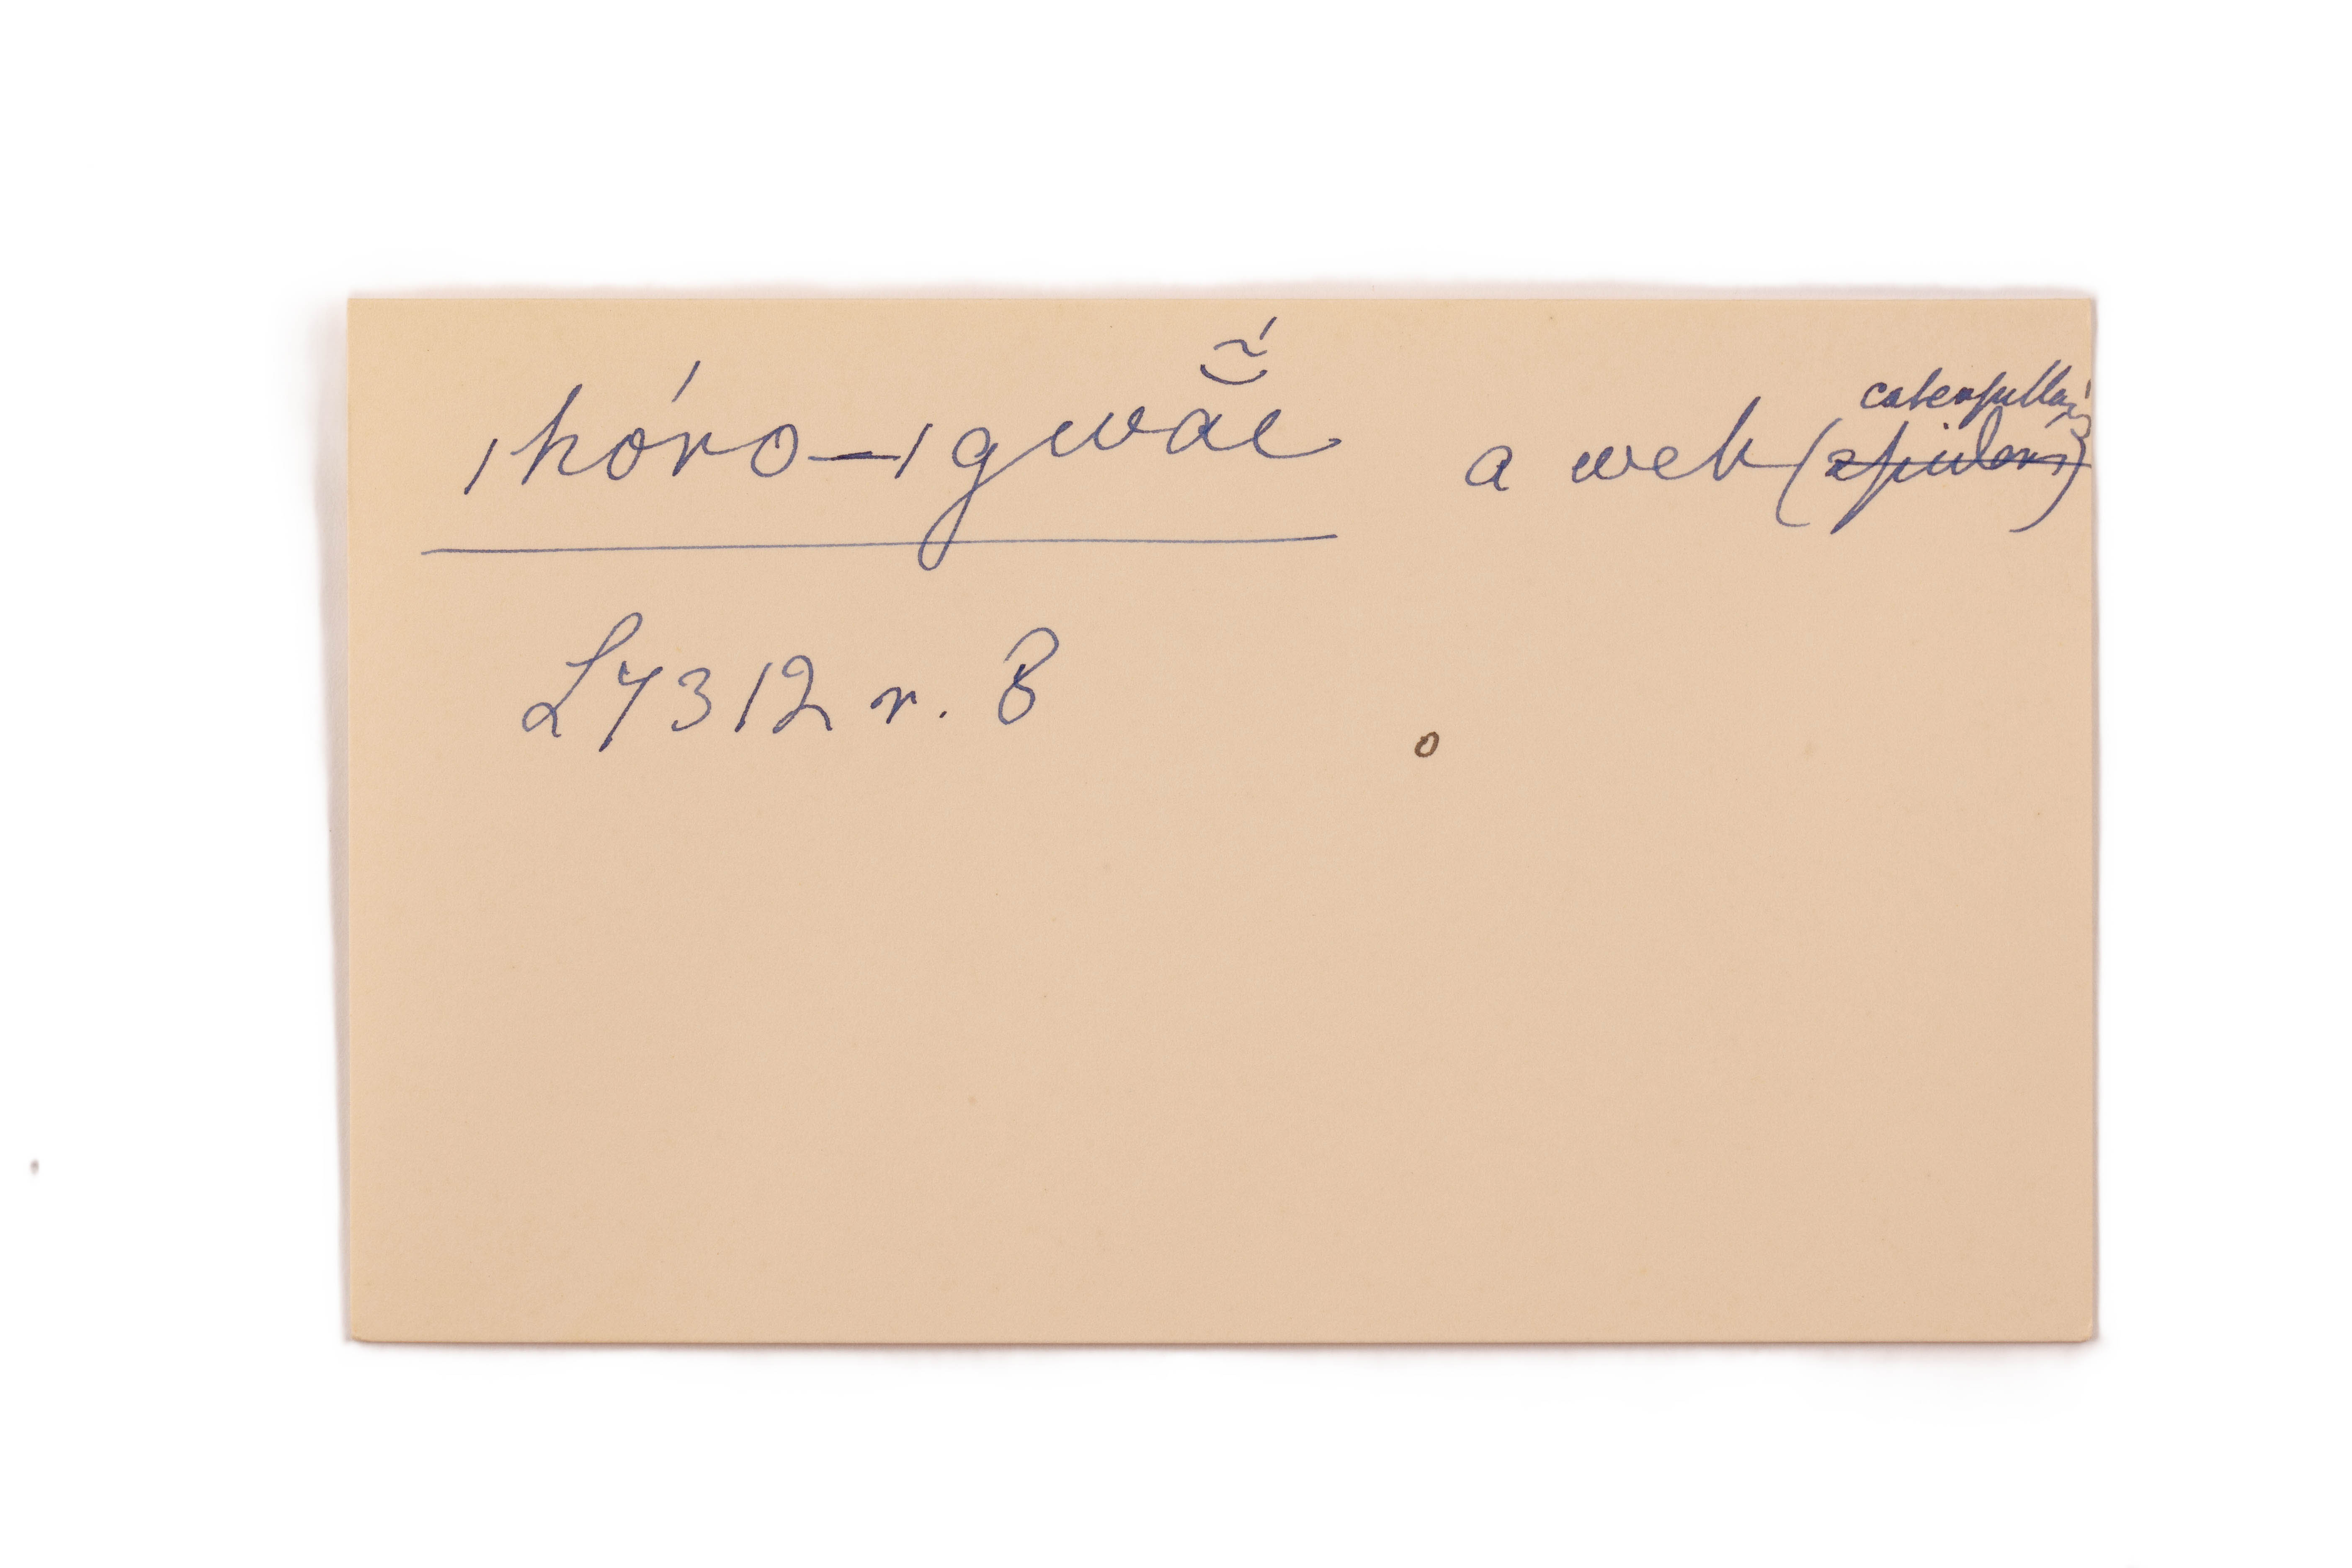 ǀhóro-ǀgwã̆́ĕ a web (caterpillar's ~~spider's~~)
L7312 r. B
o